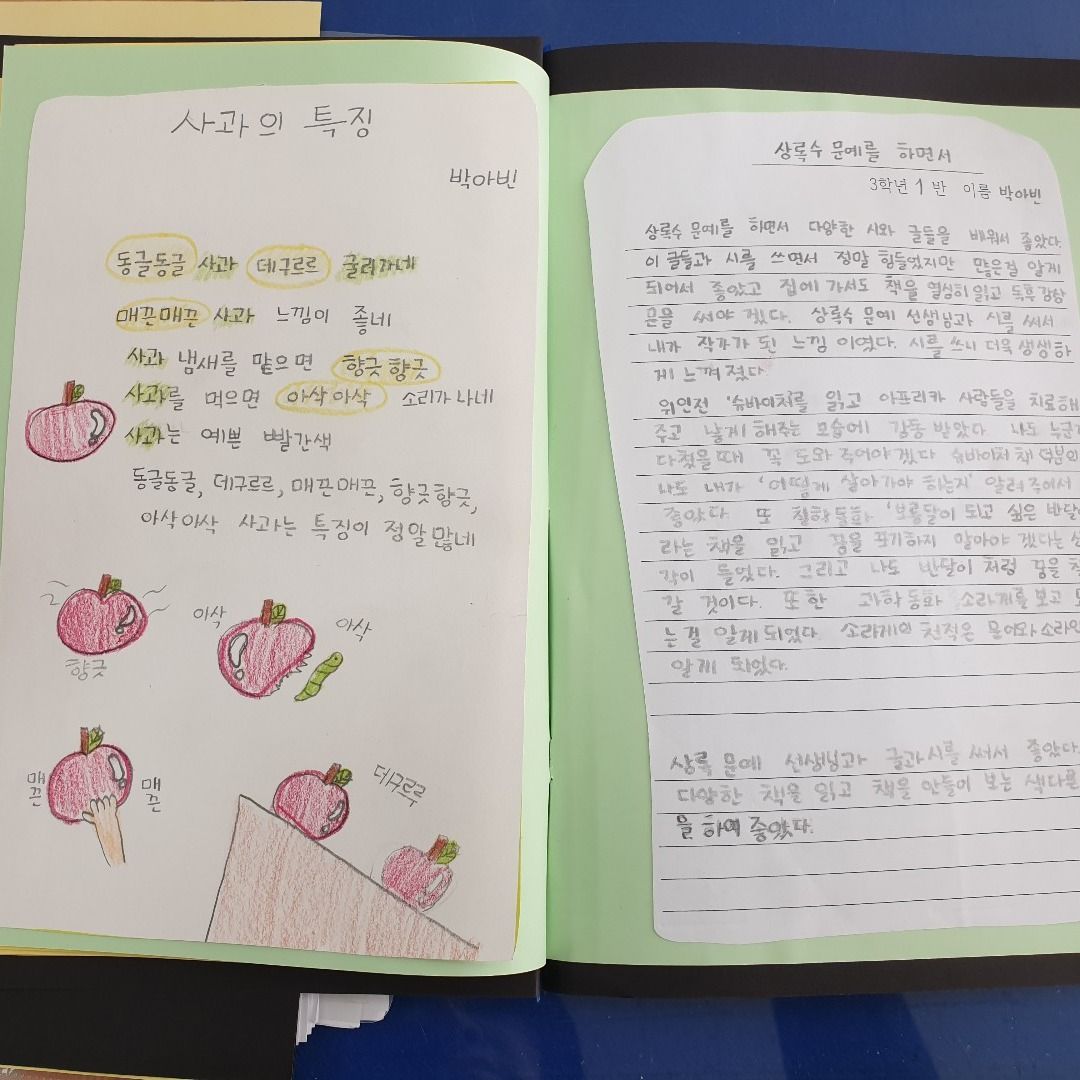 사과의 특징
박아빈
동글동글 사과 데구르르 굴러가네
매끈매끈 사과 느낌이 좋네
사과 냄새를 맡으면 향긋향긋
사과를 먹으면 아삭아삭 소리가 나네
사과는 예쁜 빨간색
동글동글, 데구르르, 매끈매끈, 향긋향긋,
아삭아삭 사과는 특징이 정말 많네
향긋
아삭
아삭
매끈
매끈
데구르르
상록수 문예를 하면서
3학년 1 반 이름 박아빈
상록수 문예를 하면서 다양한 시와 글들을 배워서 좋았다.
이 글들과 시를 쓰면서 정말 힘들었지만 많은걸 알게
되어서 좋았고 집에 가서도 책을 열심히 읽고 독후감상
문을 써야 겠다. 상록수 문예 선생님과 시를 써서
내가 작가가 된 느낌 이였다. 시를 쓰니 더욱 생생하
게 느껴 졌다
위인전 '슈바이처를 읽고 아프리카 사람들을 치료해
주고 낳게 해주는 모습에 감동 받았다 나도
다쳤을때 꼭 도와 주어야 겠다 슈바이처 책 덕분에
나도 내가 '어떻게 살아가야 하는지' 알려 주어서
좋았다 또 철학동화 '보름달이 되고 싶은
라는 책을 읽고 꿈을 포기하지 말아야 겠다는
각이 들었다. 그리고 나도 반달이 처럼 꿈을
갈 것이다. 또한 과학동화 소라게를 보고
는걸 알게 되었다 소라게의 천적은 문어와
알게 되었다.
상록 문예 선생님과 글과시를 써서 좋았다.
다양한 책을 읽고 책을 만들어 보는
을 하여 좋았다.